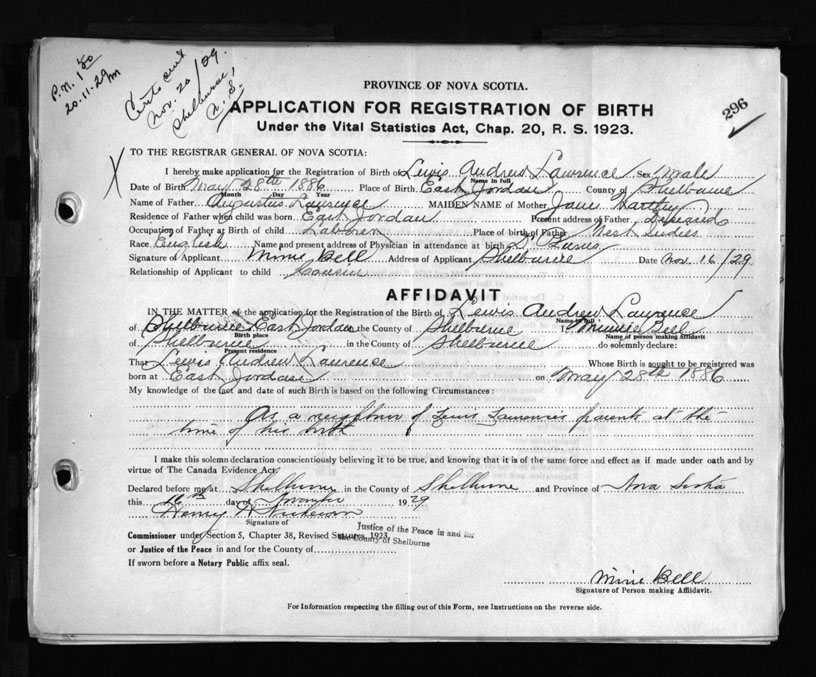 P.N. 1 50
20-11-29 m
Certs sent
Nov. 20/29.
Shelburne,
N. S.
296
PROVINCE OF NOVA SCOTIA.
APPLICATION FOR REGISTRATION OF BIRTH
Under the Vital Statistics Act, Chap. 20, R. S. 1923.
X
TO THE REGISTRAR GENERAL OF NOVA SCOTIA:
I hereby make application for the Registration of Birth of Lewis Andrew Lawrence Sex Male
Name in full
Date of Birth May 28th 1886 Place of Birth East Jordan County of Shelburne
Month Day Year
Name of Father Augustus Lawrence MAIDEN NAME of Mother Jane
Residence of Father when child was born East Jordan Present address of Father Deceased
Occupation of Father at Birth of child Laborer Place of birth of Father West Indies
Race English Name and present address of Physician in attendance at birth Dr
Signature of Applicant Minnie Bell Address of Applicant Shelburne Date Nov. 16/29
Relationship of Applicant to child Cousin
AFFIDAVIT
IN THE MATTER of the application for the Registration of the Birth of Lewis Andrew Lawrence
Name in full
of Shelburne East Jordan in the County of Shelburne I Minnie Bell
Birth place Name of person making Affidavit
of Shelburne in the County of Shelburne do solemnly declare:
Present residence
That Lewis Andrew Lawrence Whose Birth is sought to be registered was
born at East Jordan on May 28th 1886
My knowledge of the fact and date of such Birth is based on the following Circumstances:
As a neighbour of Lewis Lawrences parents at the
time of his birth
I make this solemn declaration conscientiously believing it to be true, and knowing that it is of the same force and effect as if made under oath and by
virtue of The Canada Evidence Act.
Declared before me at Shelburne in the County of Shelburne and Province of Nova Scotia
this 16th day of November 1929
Henry
Signature of
Commissioner under Section 5, Chapter 38, Revised Statutes, 1923
Justice of the Peace in and for
the County of Shelburne
or Justice of the Peace in and for the County of
If sworn before a Notary Public affix seal.
Minnie Bell
Signature of Person making Affidavit.
For Information respecting the filling out of this Form, see Instructions on the reverse side.